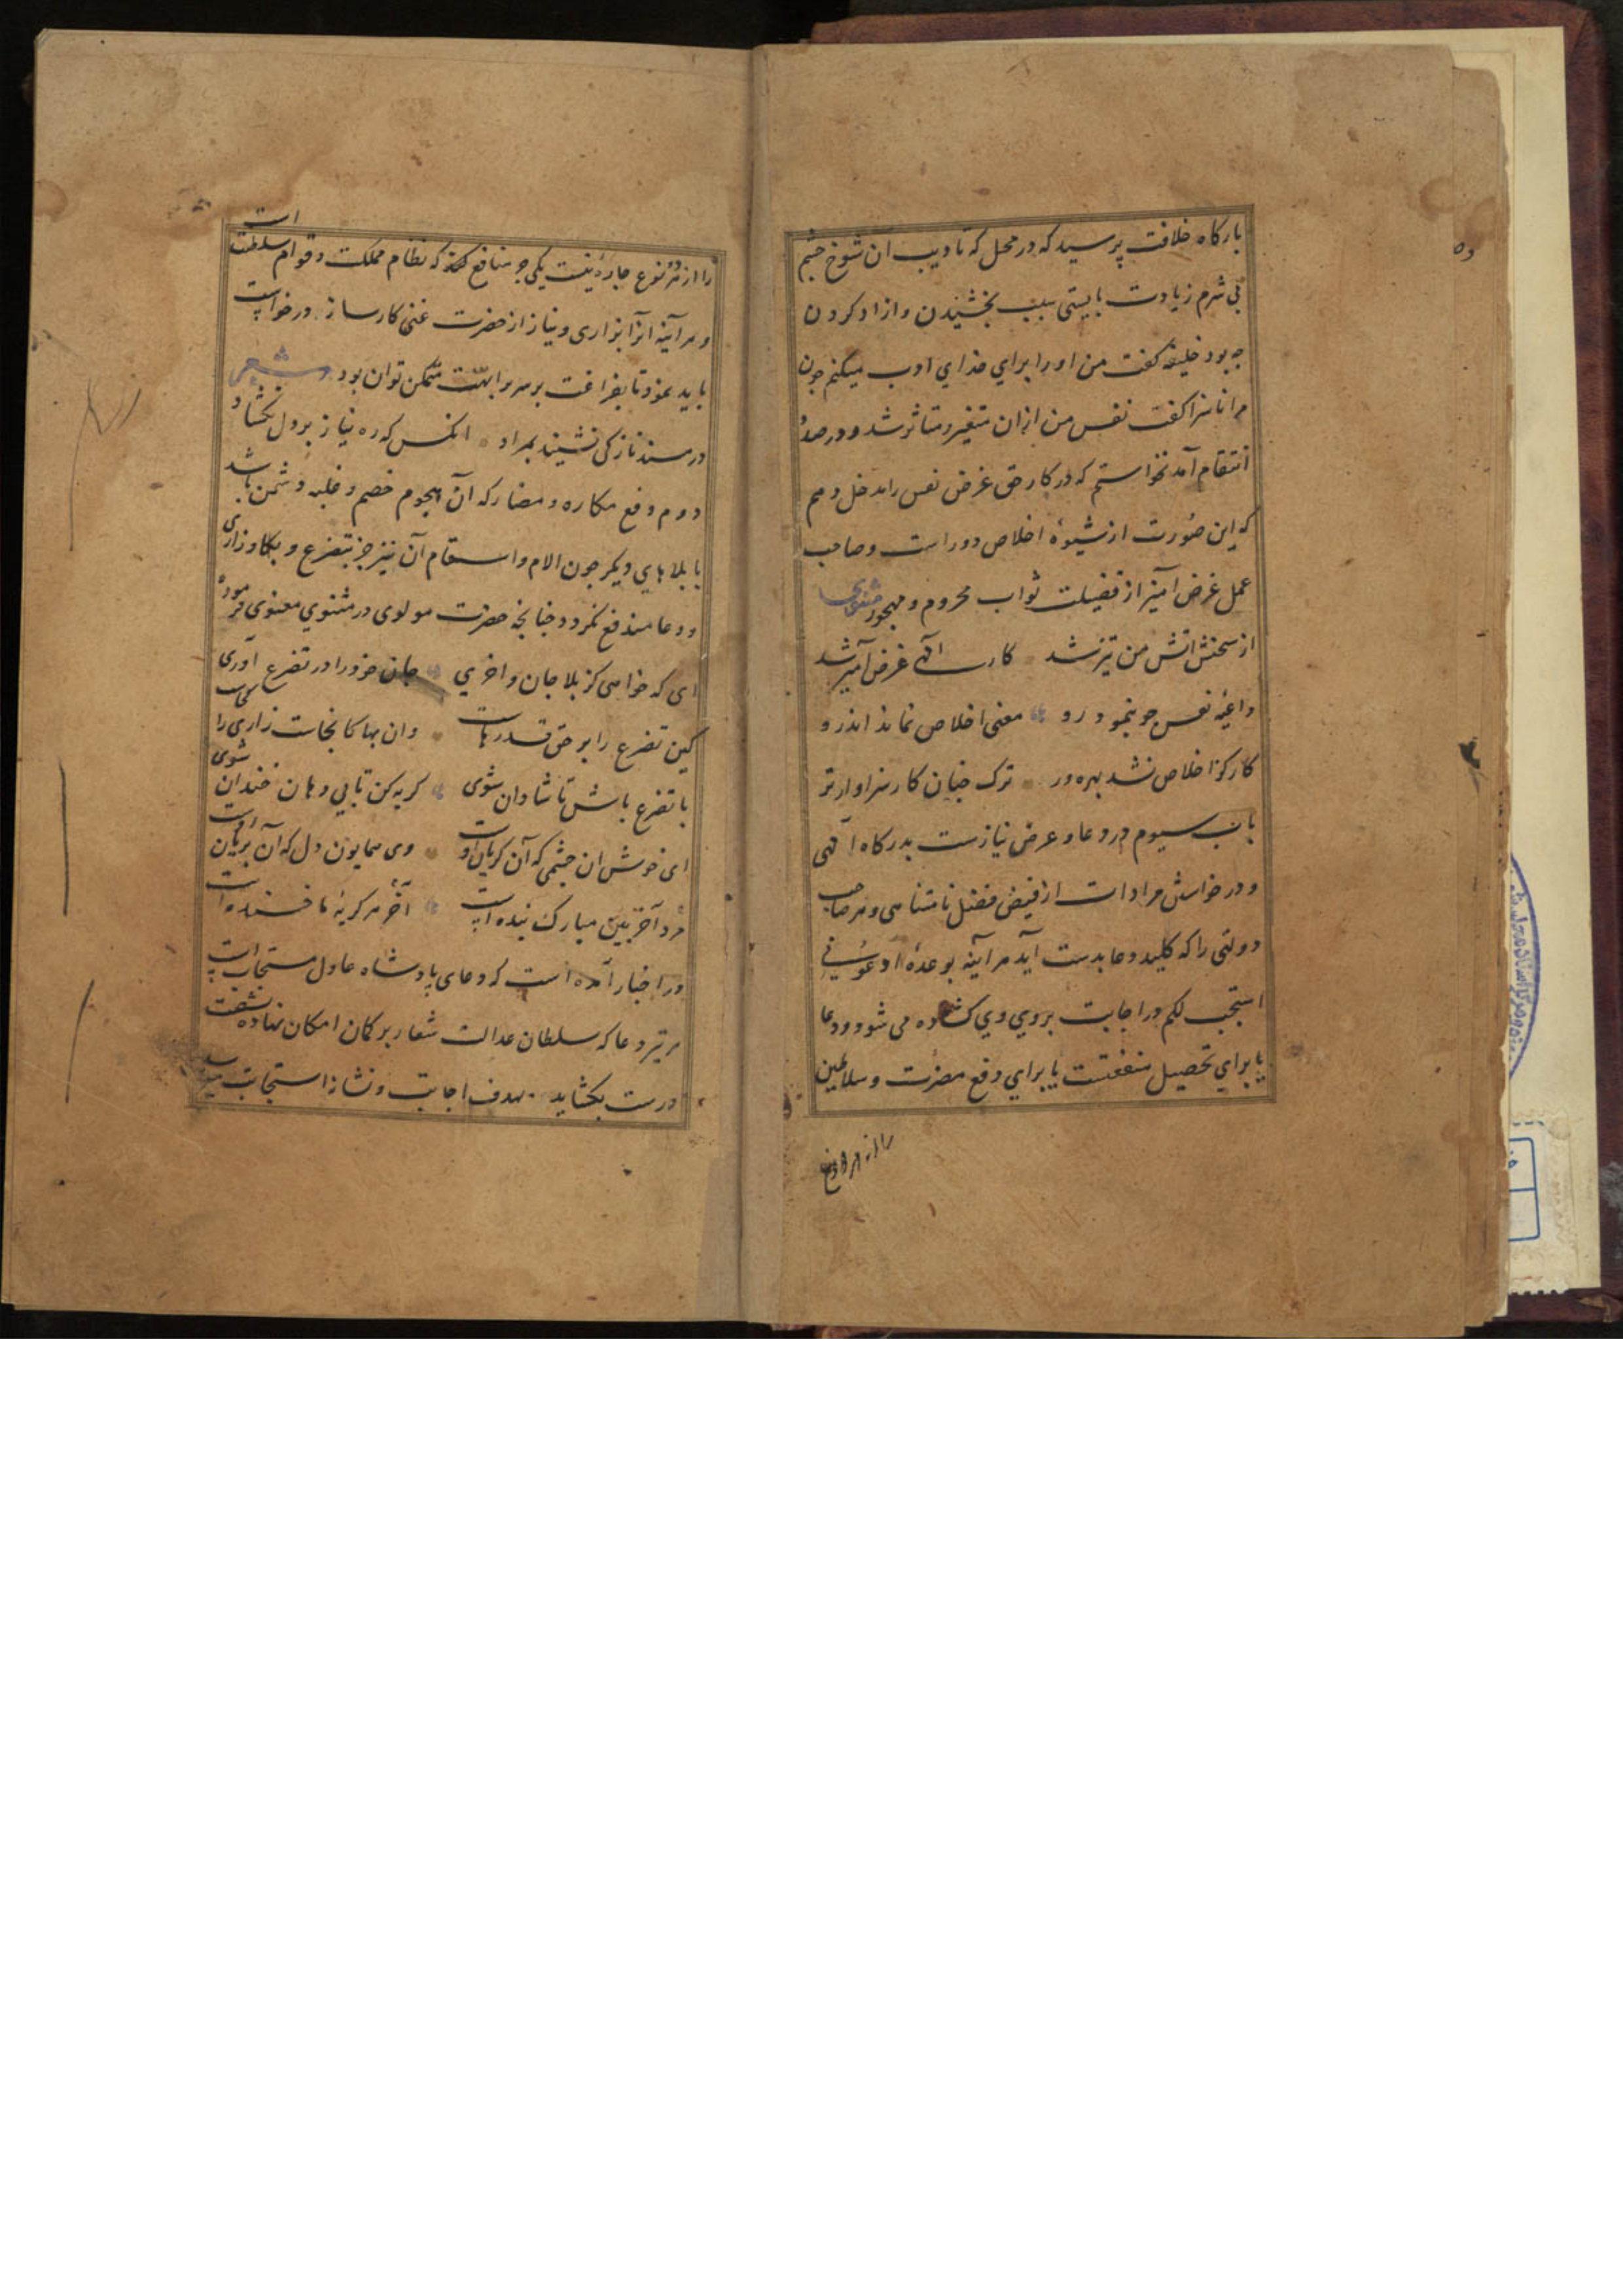 بارکاه خلافت پرسید که در محل که تادیب ان شوخ چشم
بی شرم زیادت بایستی سبب بخشیدن و ازاد کردن
چه بود خلیفه کفت من او را برای خدای ادب میکنم چون
مرا ناسزا کفت نفس من ازان متغیر و متاثر شد و در صدد
انتقام آمد نخواستم که در کار حق غرض نفس را مدخل دهم
که این صورت از شیوهٔ اخلاص دور است و صاحب
عمل غرض آمیز از فضیلت ثواب محروم و مهجور مثنوی
از سخنش اتش من تیز شد کار الهی غرض آمیز شد
داعیهٔ نفس چو بنمود رو معنی اخلاص نماند اندرو
کار کز اخلاص نشد بهره ور ترک چنان کار سزاوارتر
باب سیوم در دعا و عرض نیازست بدرکاه الهی
و درخواستن مرادات از فیض فضل نامتناهی و هر صاحب
دولتی را که کلید دعا بدست آید هر آینه بوعدهٔ ادعونی
استجب لکم در اجابت بروی وی کشاده می شود و دعا
یا برای تحصیل منفعتست یا برای دفع مضرت و سلاطین
را از هر دو نوع
را از هر دو نوع چاره نیست یکی جر منافع که نظام مملکت و قوام سلطنت است
و هر آینه آنرا بزاری و نیاز از حضرت غنی کارساز درخواست
باید نمود تا بفراغت بر سریر ابهت متمکن توان بود شعر
در مسند ناز کی نشیند بمراد انکس که ره نیاز بر دل نکشاد
دوم دفع مکاره و مضار که آن هجوم خصم و غلبه دشمن باشد
یا بلاهای دیکر چون الام و اسقام آن نیز جز بتضرع و بکا و زاری
و دعا مندفع نکردد چنانچه حضرت مولوی در مثنوی معنوی فرموده
ای که خواهی کز بلا جان واخری جان خود را در تضرع آوری
کین تضرع را بر حق قدرهاست وان بها کانجاست زاری را کجاست
با تضرع باش تا شادان شوی کریه کن تا بی دهان خندان شوی
ای خوش ان چشمی که آن کریان اوست وی همایون دل که آن بریان اوست
مرد آخر بین مبارک بنده ایست آخر هر کریه ما خنده ایست
در اخبار آمده است که دعای پادشاه عادل مستجاب است
هر تیر دعا که سلطان عدالت شعار بر کمان امکان نهاده بشصت
درست بکشاید بهدف اجابت و نشانهٔ استجابت میرسد